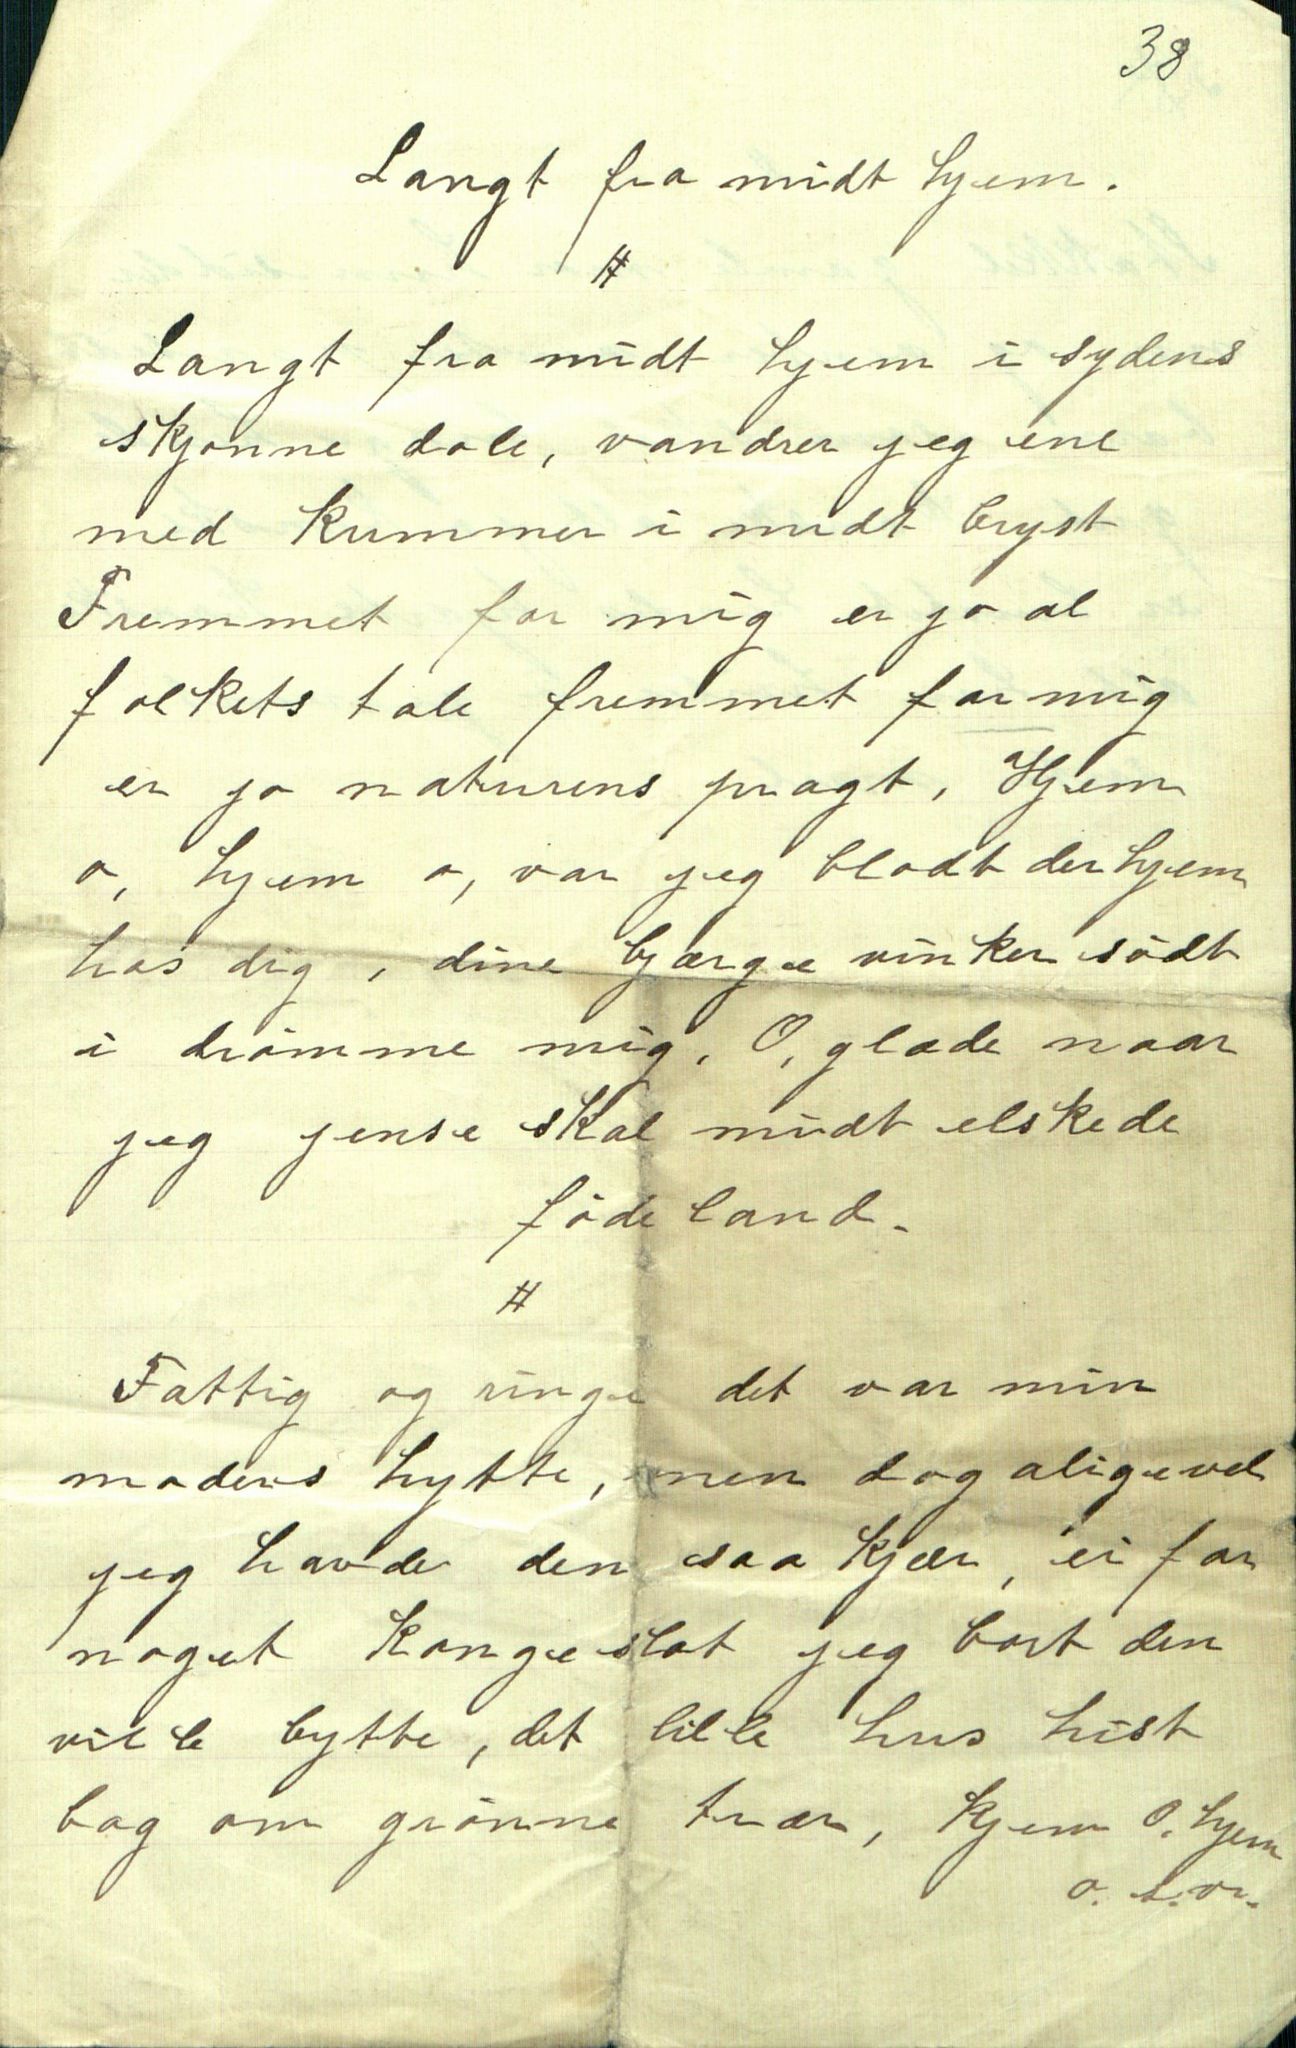 38
Langt fra midt hjem.
#
Langt fra midt hjem i sydens
skjønne dale, vandrer jeg ene
med kummer i midt bryst
Fremmet for mig er jo al
folkets tale fremmet for mig
er jo naturens pragt, Hjem
o, hjem o, var jeg blodt der hjem
hos dig, dine bjærge vinker södt
i drömme mig. O, glæde naar
jeg jense skal midt elskede
föde land.
#
Fattig og ringe det var min
moders hytte, men dog aligevel
jeg havde den saa kjær, ei for
noget kongeslot jeg bort den
ville bytte, det lille hus hist
bag om grönne trær, Hjem O. hjem
o. s. v.